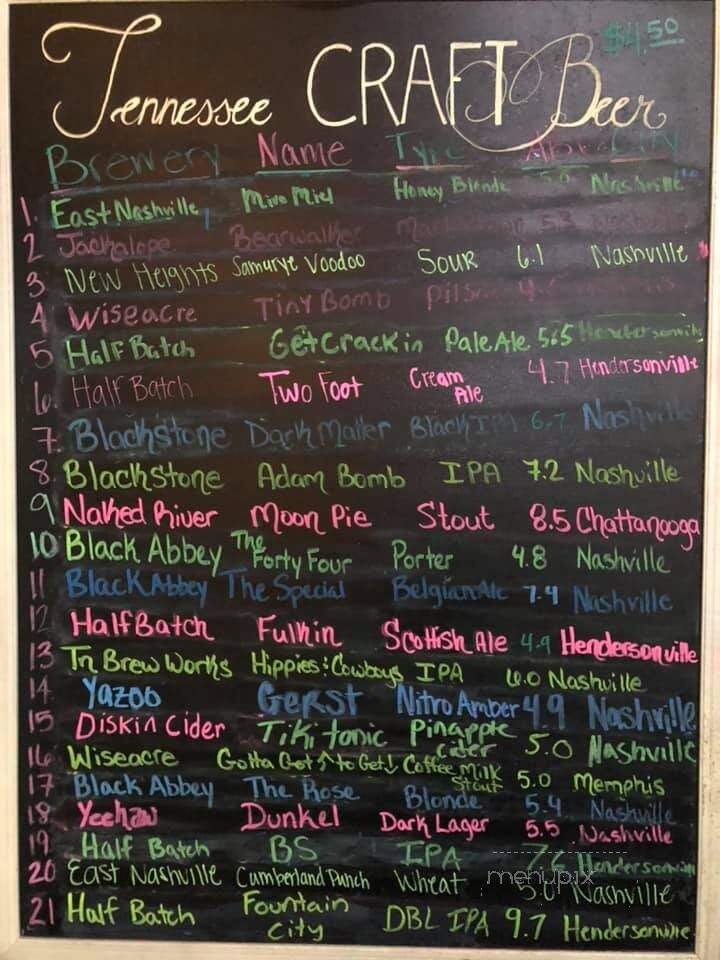 $4.50
Tennessee CRAFT Beer
Brewery Name Type ABV City
1. East Nashville Miro Miel Honey Blonde Nashville
2 Jackalope Bearwalker
3 New Heights Samurye Voodoo Sour 6.1 Nashville
4 Wiseacre Tiny Bomb Pils
5 Half Batch Get Crackin Pale Ale 5.5 Hendersonville
6. Half Batch Two Foot Cream Ale 4.7 Hendersonville
7. Blackstone Dark Matter Black IPA 6.7 Nashville
8. Blackstone Adam Bomb IPA 7.2 Nashville
9 Naked River Moon Pie Stout 8.5 Chattanooga
10 Black Abbey The Forty Four Porter 4.8 Nashville
11 Black Abbey The Special Belgian Ale 7.4 Nashville
12 Half Batch Fulkin Scottish Ale 4.9 Hendersonville
13 Tn Brew Works Hippies & Cowboys IPA 6.0 Nashville
14 Yazoo Gerst Nitro Amber 4.9 Nashville
15 Diskin Cider Tiki tonic Pinapple cider 5.0 Nashville
16 Wiseacre Gotta Get ↑ to Get ↓ Coffee Milk Stout 5.0 Memphis
17 Black Abbey The Rose Blonde 5.4 Nashville
18 Yeehaw Dunkel Dark Lager 5.5 Nashville
19 Half Batch BS IPA 7.6 Hendersonville
menupix
20 East Nashville Cumberland Punch Wheat 5.0 Nashville
21 Half Batch Fountain City DBL IPA 9.7 Hendersonville